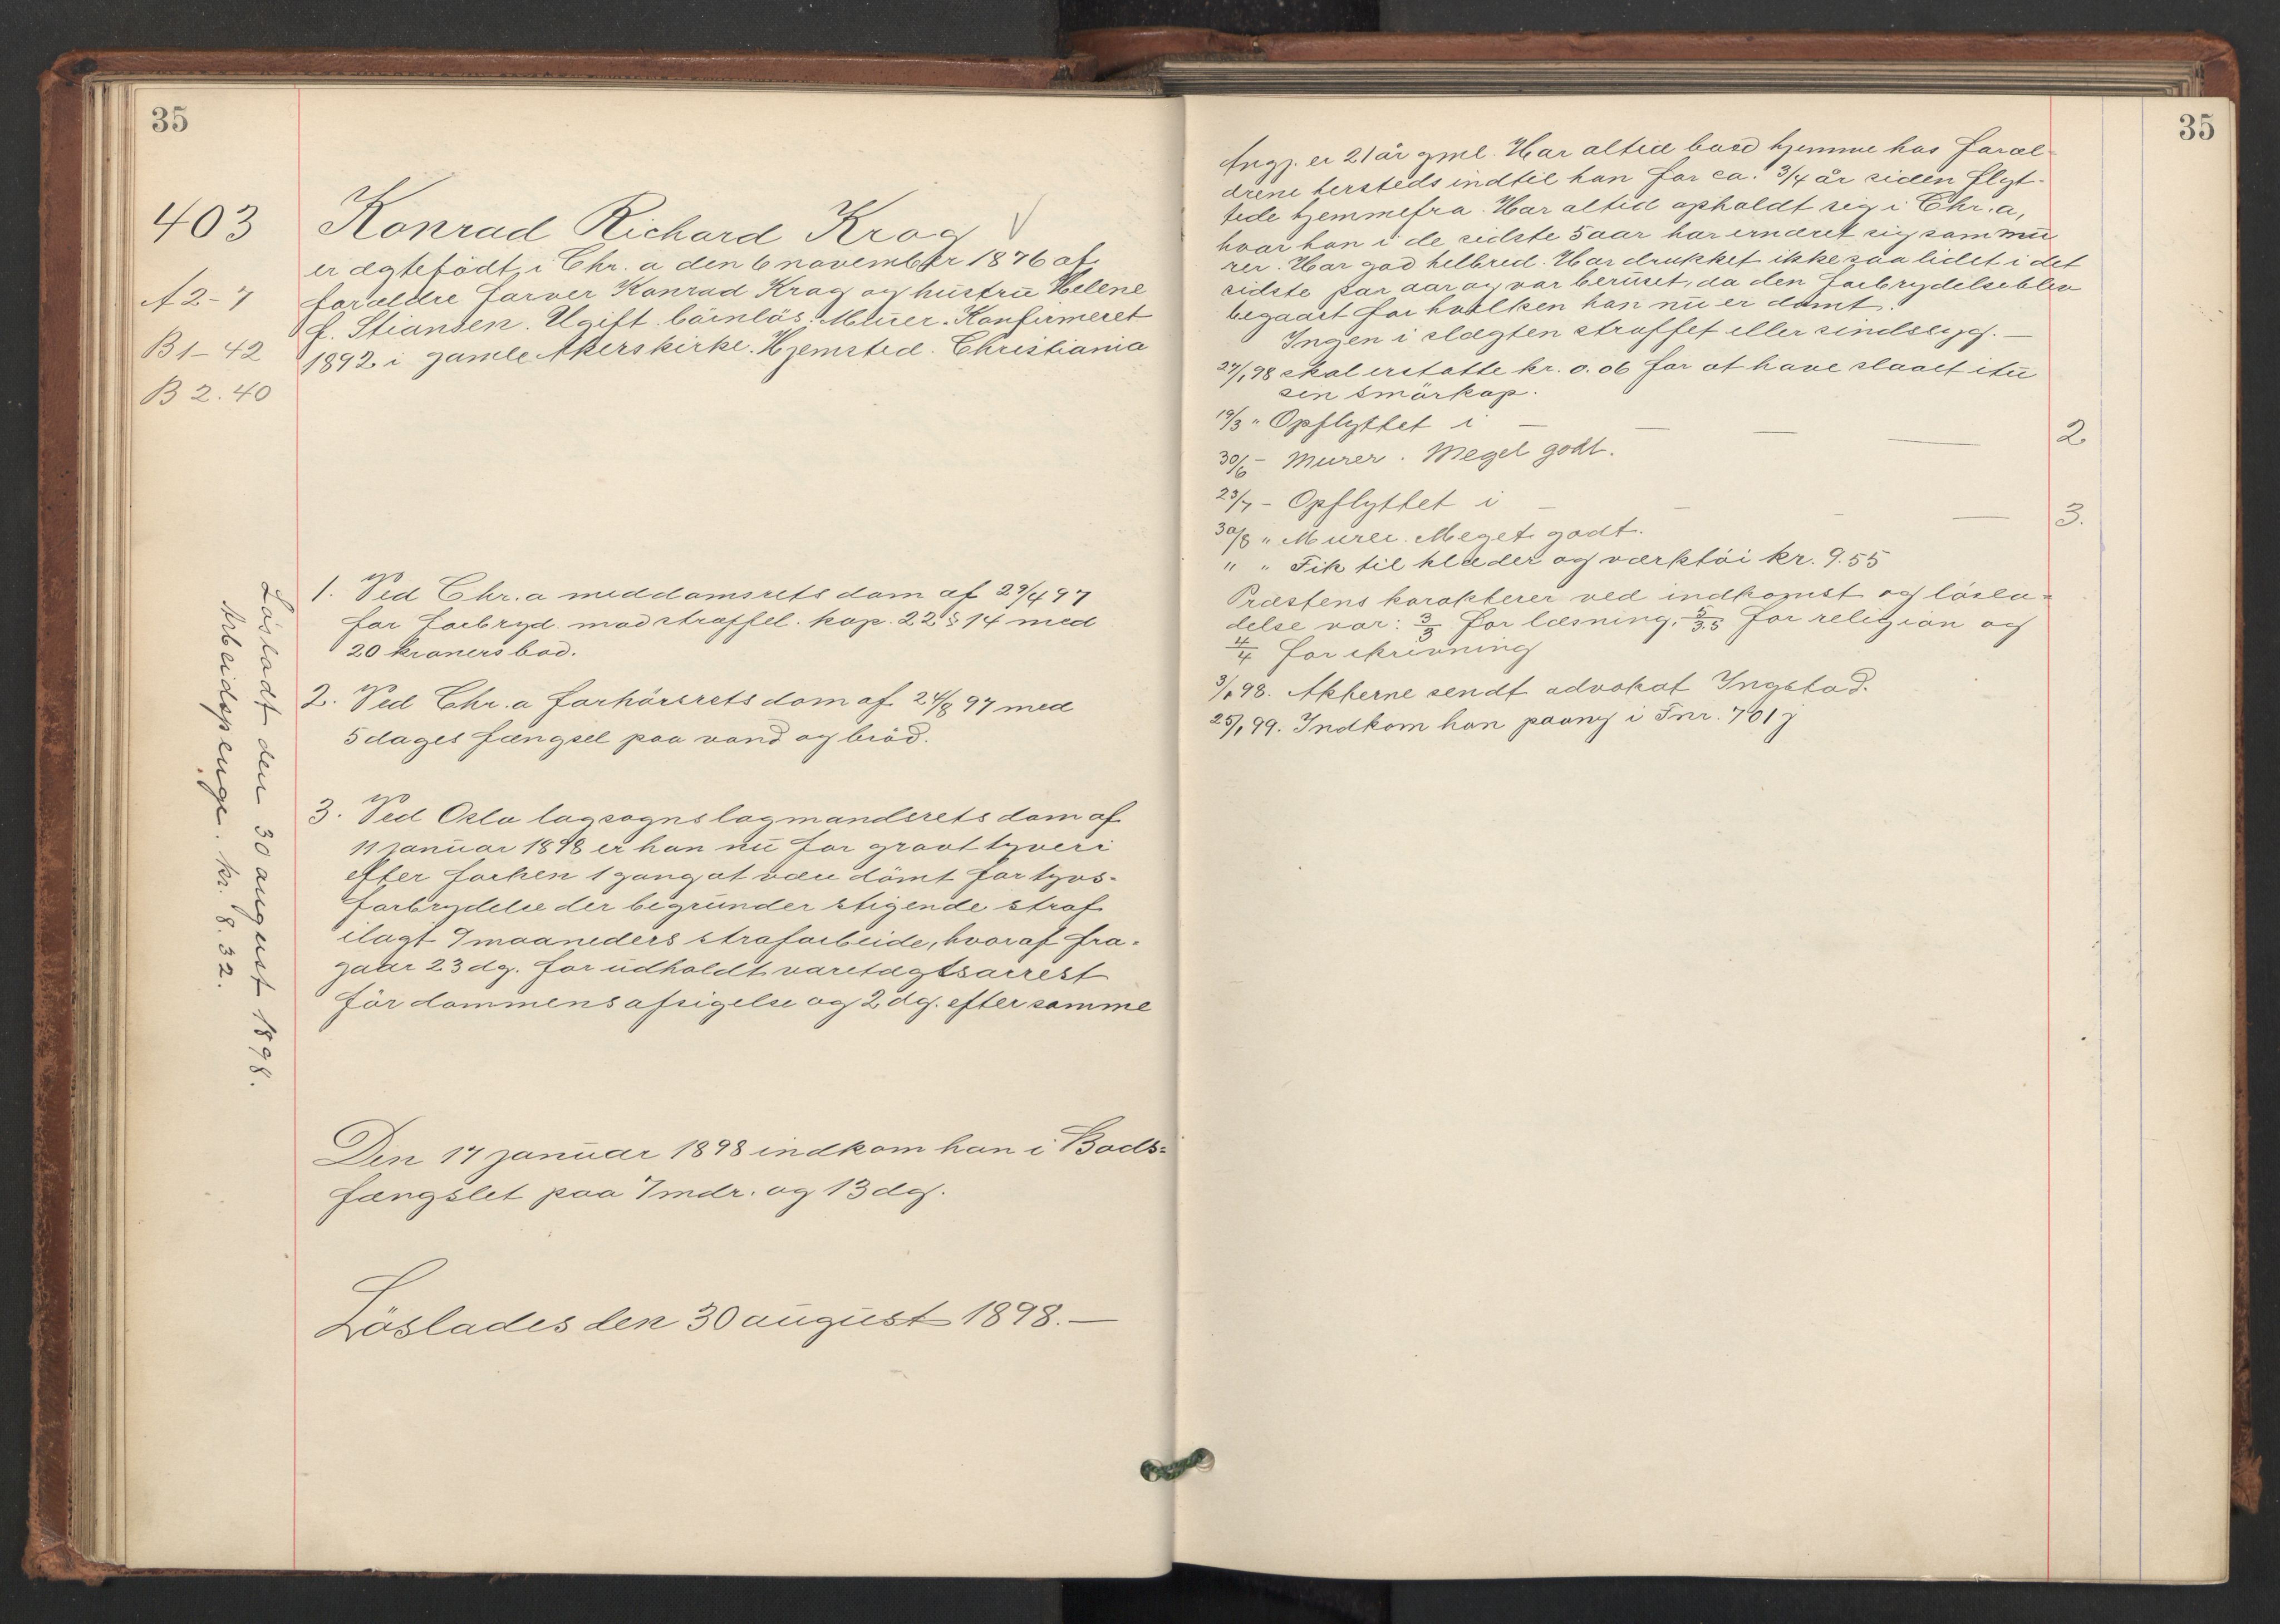 35
403
A 2-7
B 1-42
B 2.40
Konrad Richard Krog √
er ægtefödt i Chr.a den 6 november 1876 af
forældre farver Konrad Krog og hustru Helene
f. Stiansen. Ugift. barnlös. Murer. Konfirmeret
1892 i gamle Akers kirke. Hjemsted. Christiania
1. Ved Chr.a meddomsrets dom af 29/4 97
for forbryd. mod straffel. kap. 22 § 14 med
20 kroners bod.
2. Ved Chr.a forhörsrets dom af 24/8 97 med
5 dages fængsel paa vand og bröd.
3. Ved Oslo lagsogns lagmandsrets dom af
11 januar 1898 er han nu for grovt tyveri
efter forhen 1 gang at være dömt for tyvs-
forbrydelse der begrunder stigende straf
ilagt 9 maaneders strafarbeide, hvoraf fra-
gaar 23 dg. for udholdt varetægtsarrest
för dommens afsigelse og 2 dg. efter samme
Den 17 januar 1898 indkom han i Bods=
fængslet paa 7 mdr. og 13 dg.
Löslades den 30 august 1898.—
Lösladt den 30 august 1898.
Arbeidspenge. kr. 8.32.
35
Angj. er 21 år gml. Har altid boed hjemme hos foræl-
drene hersteds indtil han for ca. 3/4 år siden flyt-
tede hjemmefra. Har altid opholdt sig i Chr.a,
hvor han i de sidste 5 aar har ernæret sig som mu
rer. Har god helbred. Har drukket ikke saa lidet i det
sidste par aar og var beruset, da den forbrydelse blev
begaaet for hvilken han nu er dömt.
Ingen i slægten straffet eller sindssyg.—
27/1 98 skal erstatte kr. 0.06 for at have slaaet itu
sin smörkop.
19/3 " Opflyttet i — — — — 2
30/6 – Murer. Meget godt.
23/7 – Opflyttet i — — — — 3.
30/8 " Murer. Meget godt.
" " Fik til klæder og værktöi kr. 9.55
Præstens karakterer ved indkomst og lösla-
delse var: 3/3 for læsning, 5/3.5 for religion og
4/4 for skrivning
3/1 98. Akterne sendt advokat Ingstad.
25/1 99. Indkom han paany i Fnr. 701 j